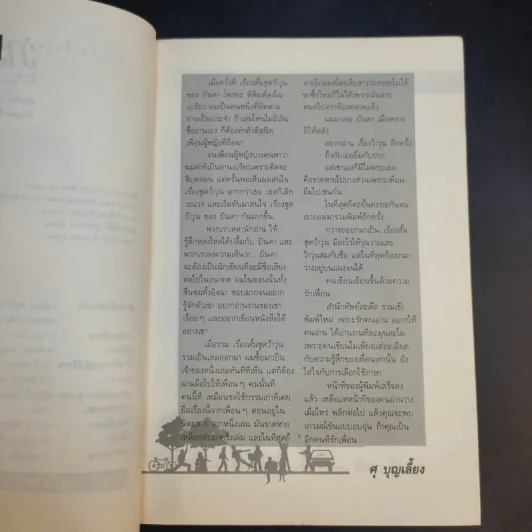 เมื่อครั้งที่ เรื่องสั้นชุดว้าวุ่น
ของ ปินดา โพสยะ ที่พิมพ์ลงใน
เปรียว ผมเป็นคนหนึ่งที่ติดตาม
อ่านเป็นประจำ ถ้าเล่มไหนไม่มีเงิน
ซื้ออ่านเอง ก็ต้องทำตัวตีสนิท
เพื่อนผู้หญิงที่ถือมา
จนเพื่อนผู้หญิงบางคนหาว่า
ผมทำทีเป็นอ่านเปรียวเพราะคิดจะ
จีบหล่อน แต่ครั้นพอเห็นผมสนใจ
เรื่องชุดว้าวุ่น มากกว่าเธอ เธอก็เลิก
ระแวง และเริ่มหันมาสนใจ เรื่องชุด
ว้าวุ่น ของ ปินดา กันมากขึ้น
พวกเราเหล่านักอ่าน ให้
รู้สึกหลงใหลได้ปลื้มกับ ปินดา และ
พวกเราลงความเห็นว่า... ปินดา
จะต้องเป็นนักเขียนที่จะมีชื่อเสียง
ต่อไปในอนาคต ผมในตอนนั้นทั้ง
ชื่นชมทั้งอิจฉา ชอบมากจนอยาก
รู้จักตัวเขา อยากอ่านงานของเขา
เรื่อยๆ และอยากเขียนหนังสือได้
อย่างเขา
เมื่อรวม เรื่องสั้นชุดว้าวุ่น
รวมเป็นเล่มออกมา ผมซื้อมาเป็น
เจ้าของหนึ่งเล่มทันทีที่เห็น แต่ก็ต้อง
ผ่านมือไปให้เพื่อนๆ คนนั้นที
คนนี้ที เหมือนชดใช้กรรมเก่าที่เคย
ยืมเรื่องนี้จากเพื่อนๆ ตอนอยู่ใน
นิตยสาร จากหนึ่งเล่ม มันขาดหาย
เหลือกลับมาครึ่งเล่ม และในที่สุดก็
หายไปหมดโดยสืบสาวรองรอยไม่ได้
หาซื้อใหม่ก็ไม่ได้เพราะมันขาย
หมดไปจากท้องตลาดแล้ว
ผมมาเจอ ปินดา เมื่อหลาย
ปีให้หลัง
อยากอ่าน เรื่องว้าวุ่น อีกครั้ง
ถึงกับเอ่ยยืมกับปาก
แต่เขาเองก็มีไม่ครบเล่ม
คือขาดหายไปบางส่วนเพราะเพื่อน
ยืมไปเช่นกัน
ในที่สุดก็คะยั้นคะยอกันจน
เขายอมมารวมพิมพ์อีกครั้ง
กว่าจะออกมาเป็น เรื่องสั้น
ชุดว้าวุ่น มีอะไรให้วุ่นวายและ
ว้าวุ่นสมกับชื่อ แต่ในที่สุดก็ออกมา
วางอยู่บนแผงจนได้
คนเขียนเขียนขึ้นด้วยความ
รักเพื่อน
สำนักศิษย์สะดือ รวมเข้า
พิมพ์ใหม่ เพราะรักคนอ่าน อยากให้
คนอ่าน ได้อ่านงานที่ละมุนละไม
เพราะคนเขียนไม่เพียงแต่ละเอียด
กับความรู้สึกของเพื่อนเท่านั้น ยัง
ใส่ใจกับการเลือกใช้ภาษา
หน้าที่ของผู้พิมพ์เสร็จลง
แล้ว เหลือแต่หน้าที่ของคนอ่านวาง
เมื่อไหร่ พลิกต่อไป แล้วคุณจะพบ
อารมณ์ขันแบบอบอุ่น ถ้าคุณเป็น
อีกคนที่รักเพื่อน
ศุ บุญเลี้ยง